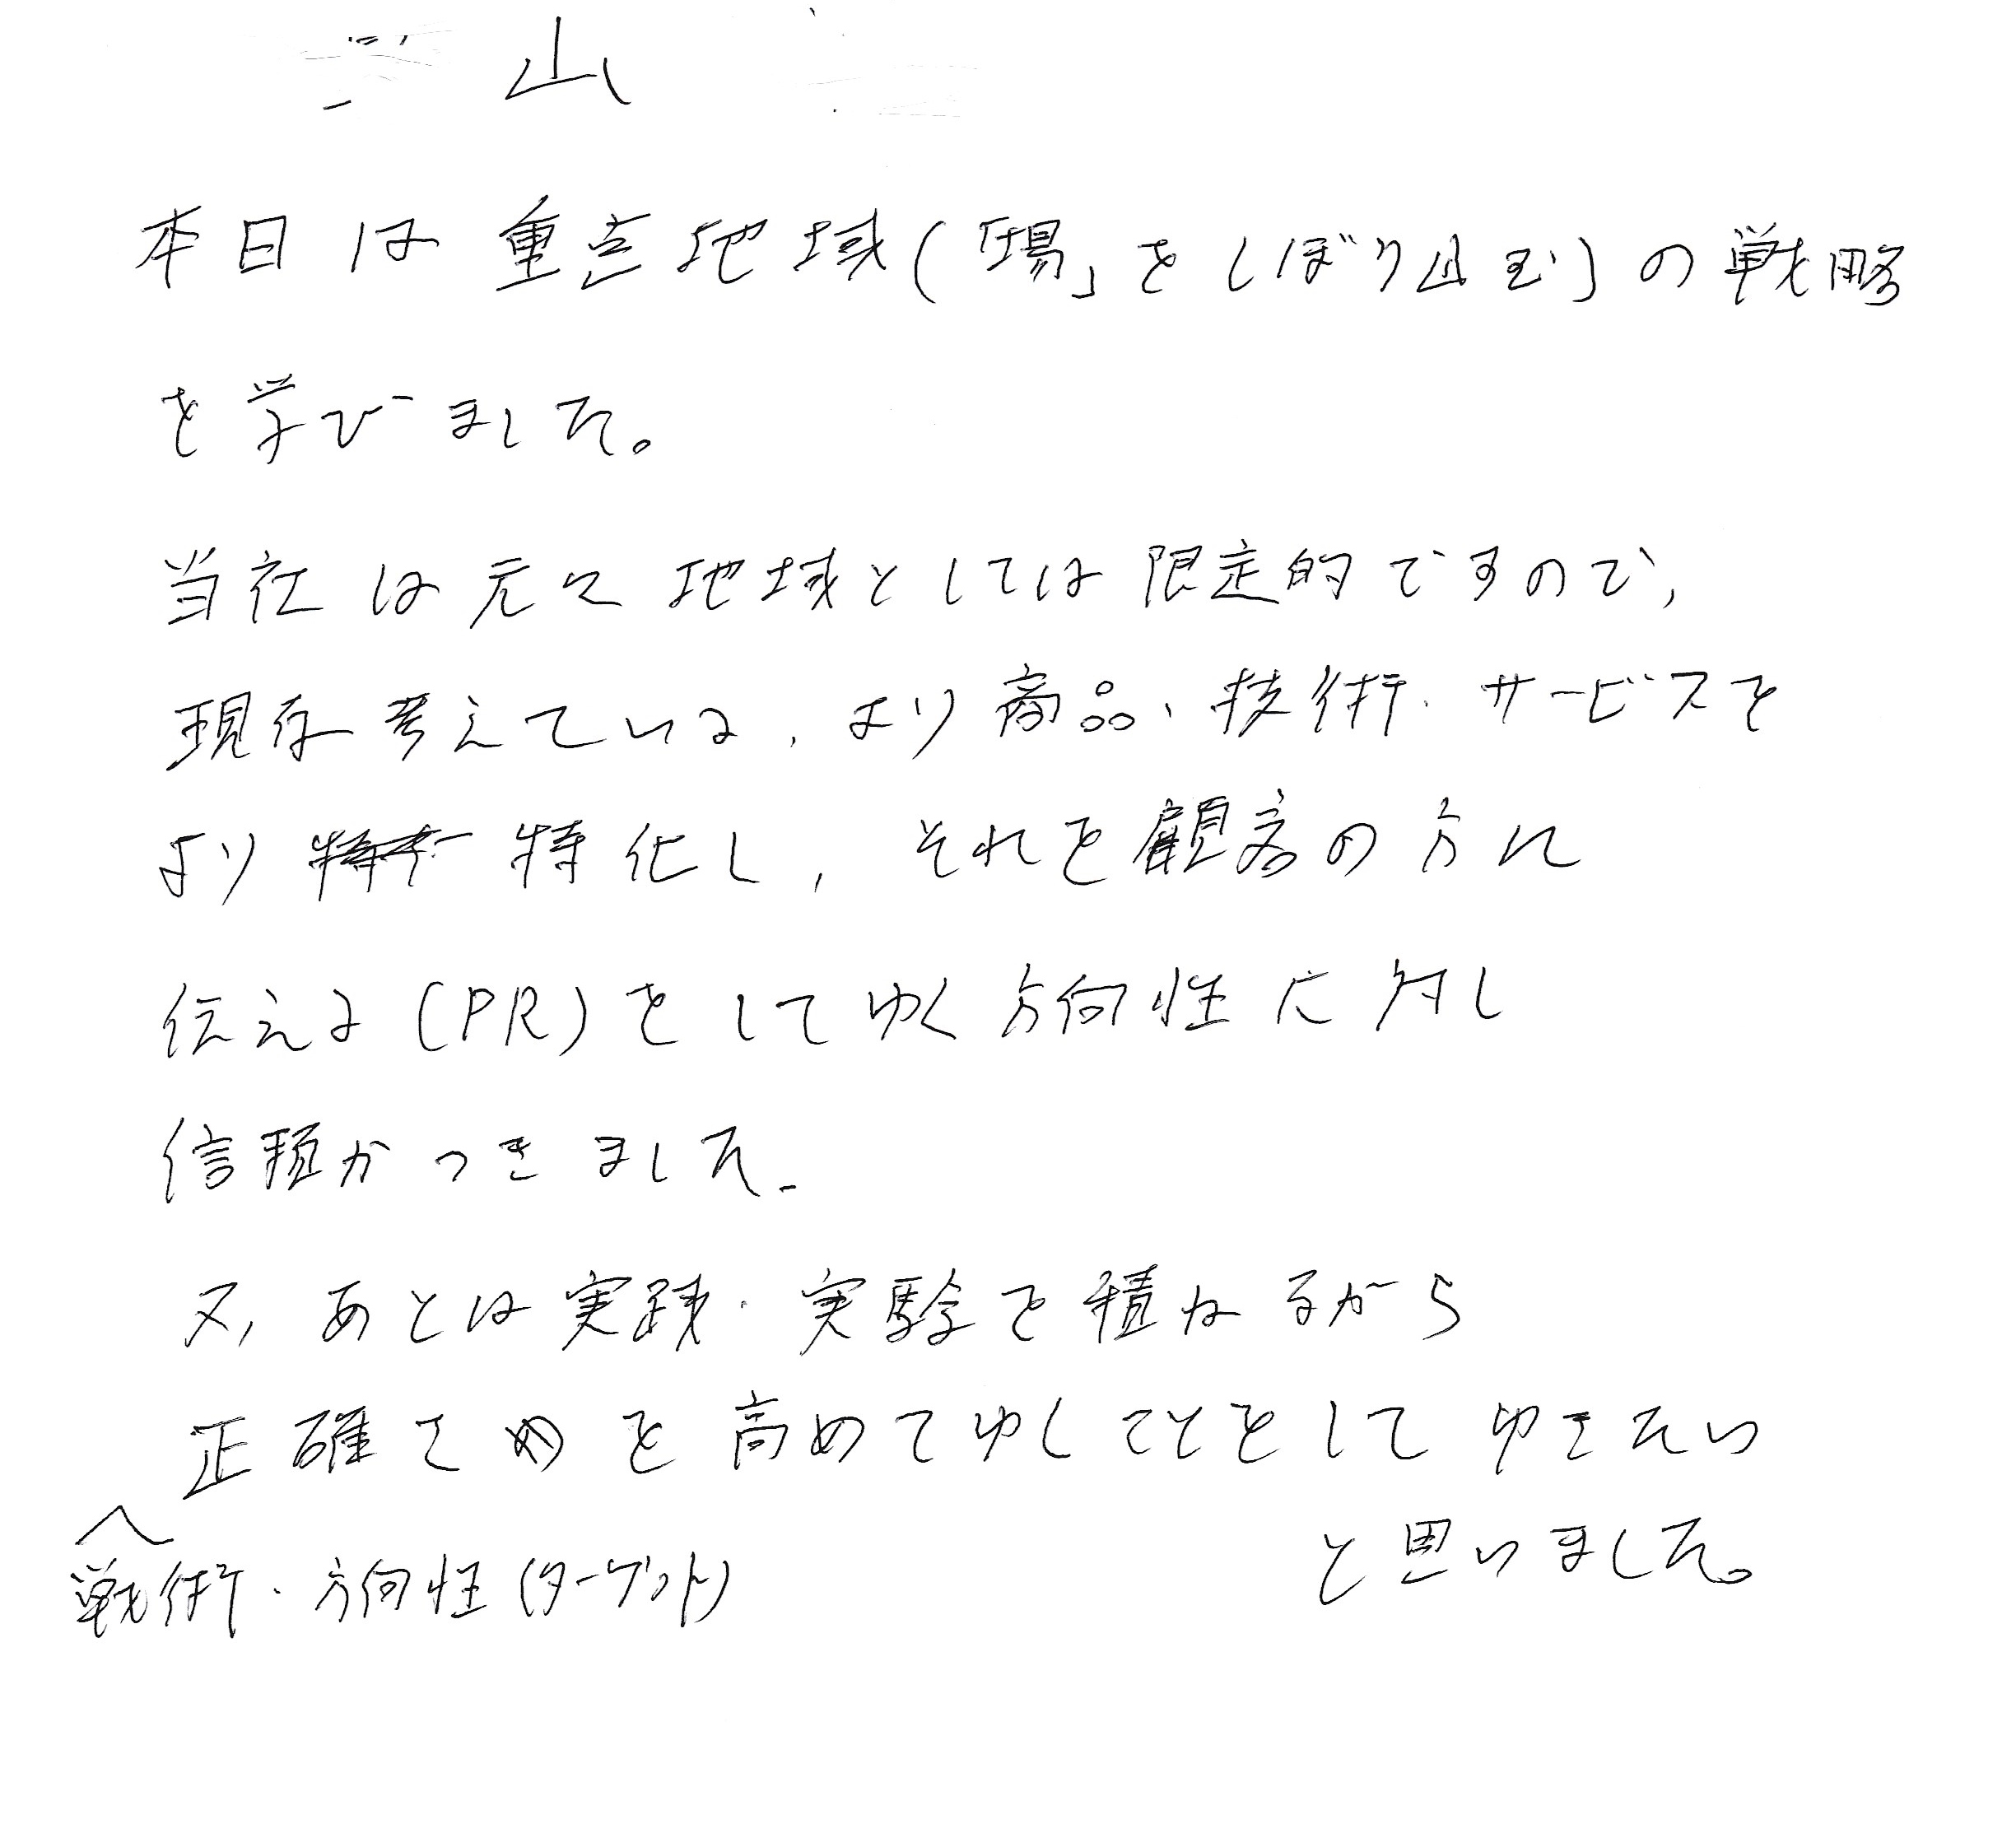 山
本日は重点地域(「場」をしぼり込む)の戦略
を学びました。
当社は元々地域としては限定的ですので、
現在考えている、より商品、技術・サービスを
より特化し、それを顧客の方に
伝える(PR)をしてゆく方向性に対し
信頼がつきました。
又、あとは実践・実験を積みながら
正確さを高めてゆくこととしてゆきたい
と思いました。
戦術・方向性(ターゲット)